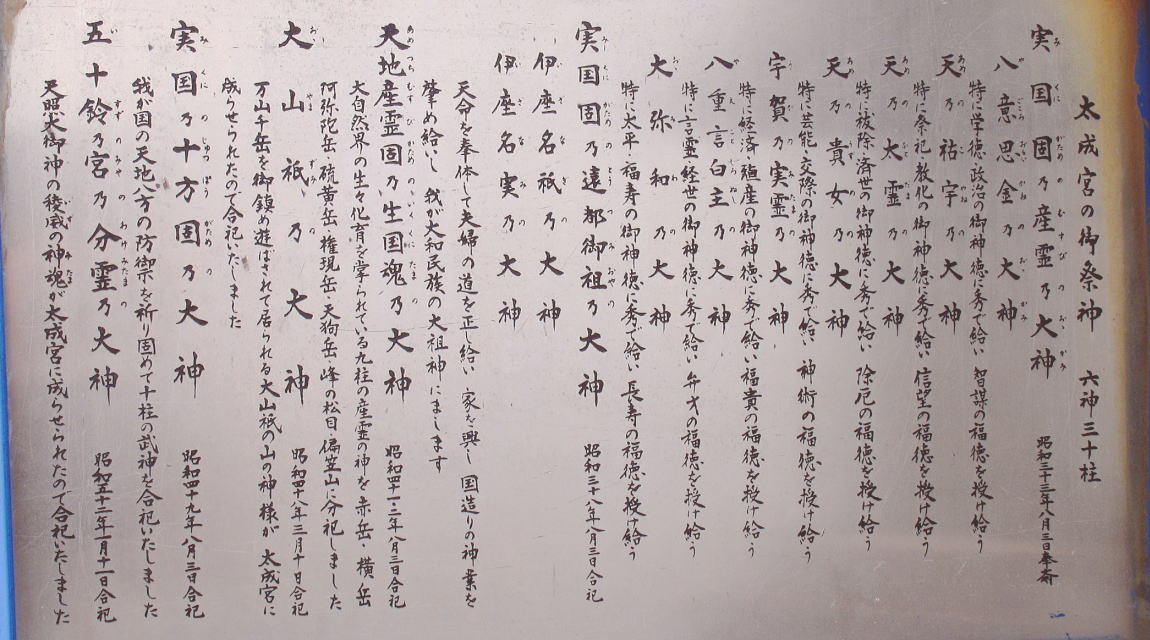 太成宮の御祭神 六神三十柱
実国固乃産霊乃大神 昭和三十三年八月三日奉斎
八意思金乃大神
特に学徳政治の御神徳に秀で給い 智謀の福徳を授け給う
天乃祐宇乃大神
特に祭祀教化の御神徳に秀で給い 信望の福徳を授け給う
天乃太霊乃大神
特に祓除済世の御神徳に秀で給い 除厄の福徳を授け給う
天乃貴女乃大神
特に芸能交際の御神徳に秀で給い 神術の福徳を授け給う
宇賀乃実霊乃大神
特に経済殖産の御神徳に秀で給い 福貴の福徳を授け給う
八重言白主乃大神
特に言霊経世の御神徳に秀で給い 弁才の福徳を授け給う
大弥和乃大神
特に太平福寿の御神徳に秀で給い 長寿の福徳を授け給う
実国固乃遠都御祖乃大神 昭和三十八年八月三日合祀
伊座名祇乃大神
伊座名実乃大神
天命を奉体して夫婦の道を正し給い 家を興し 国造りの神業を
肇め給いし 我が大和民族の大祖神にまします
天地産霊固乃生国魂乃大神 昭和四十二年八月三日合祀
大自然界の生々化育を掌られている九柱の産霊の神を赤岳・横岳
阿弥陀岳・硫黄岳・権現岳・天狗岳・峰の松目・編笠山に分祀しました
大山祇乃大神 昭和四十八年三月十日合祀
万山千岳を御鎮め遊ばされて居られる大山祇の山の神様が 太成宮に
成らせられたので合祀いたしました
実国乃十方固乃大神 昭和四十九年八月三日合祀
我が国の天地八方の防禦を祈り固めて十柱の武神を合祀いたしました
五十鈴乃宮乃分霊乃大神 昭和五十二年一月十一日合祀
天照大御神の稜威の神魂が太成宮に成らせられたので合祀いたしました